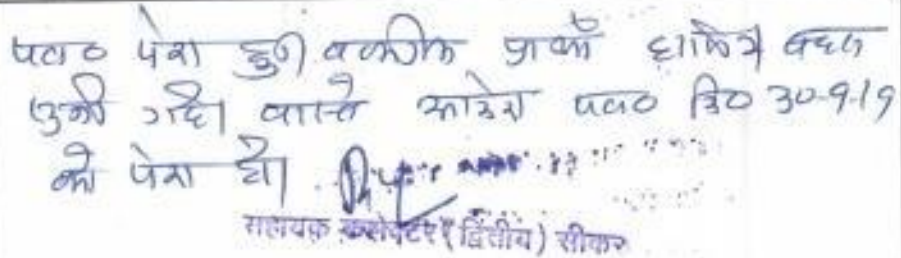 पत्रा० पेश हुई वकील प्रार्थी हाजिर बहस
सुनी गई। वास्ते आदेश पत्रा० दि० 30-9-19
को पेश हो।
सहायक कलेक्टर (द्वितीय) सीकर